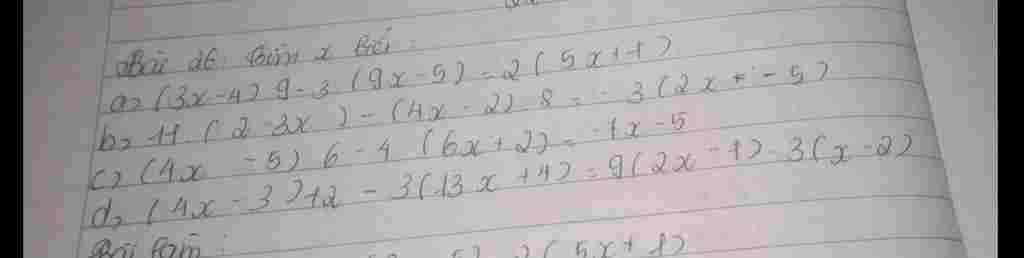 Bài 26: Tìm x biết:
a) (3x - 4) 9 - 3 (9x - 5) = 2 ( 5x + 1 )
b) 11 ( 2 - 3x ) - (4x - 2) 8 = - 3 ( 2x + - 5 )
c) (4x - 5) 6 - 4 (6x + 2) = - 1x - 5
d) (4x - 3) 12 - 3 ( 13x + 4) = 9 ( 2x - 1) - 3 ( x - 2)
Bài làm:
5) 2 ( 5x + 1 )